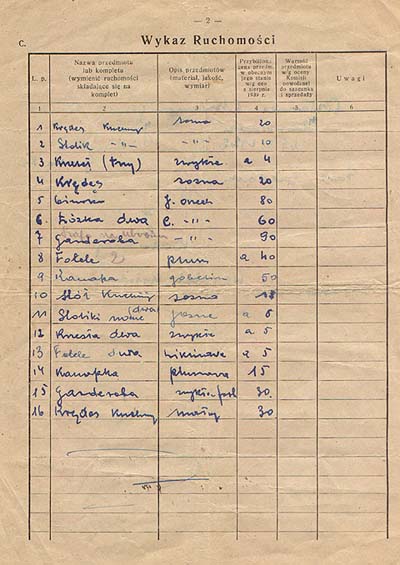 — 2 —
C. Wykaz Ruchomości
L. p.
Nazwa przedmiotu
lub kompletu
(wymienić ruchomości
składające się na
komplet)
Opis przedmiotów
(materiał, jakość,
wymiar)
w g cen
z sierpnia
1939 r.
Wartość
przedmiotu
w g oceny
Komisji
powołanej
do szacunku
i sprzedaży
Uwagi
1 2 3 4 5 6
1 Kredens Kuchenny sosna 20
2 Stolik -"- -"- 10
3 Krzesła (trzy) zwykłe a 4
4 Kredens sosna 20
5 Biurko j. orzech 80
6. Łóżka dwa C. -"- 60
7 Garderoba -"- 90
8 Fotele 2 plusz a 40
9 Kanapa gobelin 50
10 Stół Kuchenny sosna
11 Stoliki nocne (dwa) jasne a 6
12 Krzesła dwa zwykłe a 5
13 Fotele dwa wiklinowe a 5
14 Kanapka pluszowa 15
15 Garderoba zwykła 30
16 Kredens Kuchenny 30